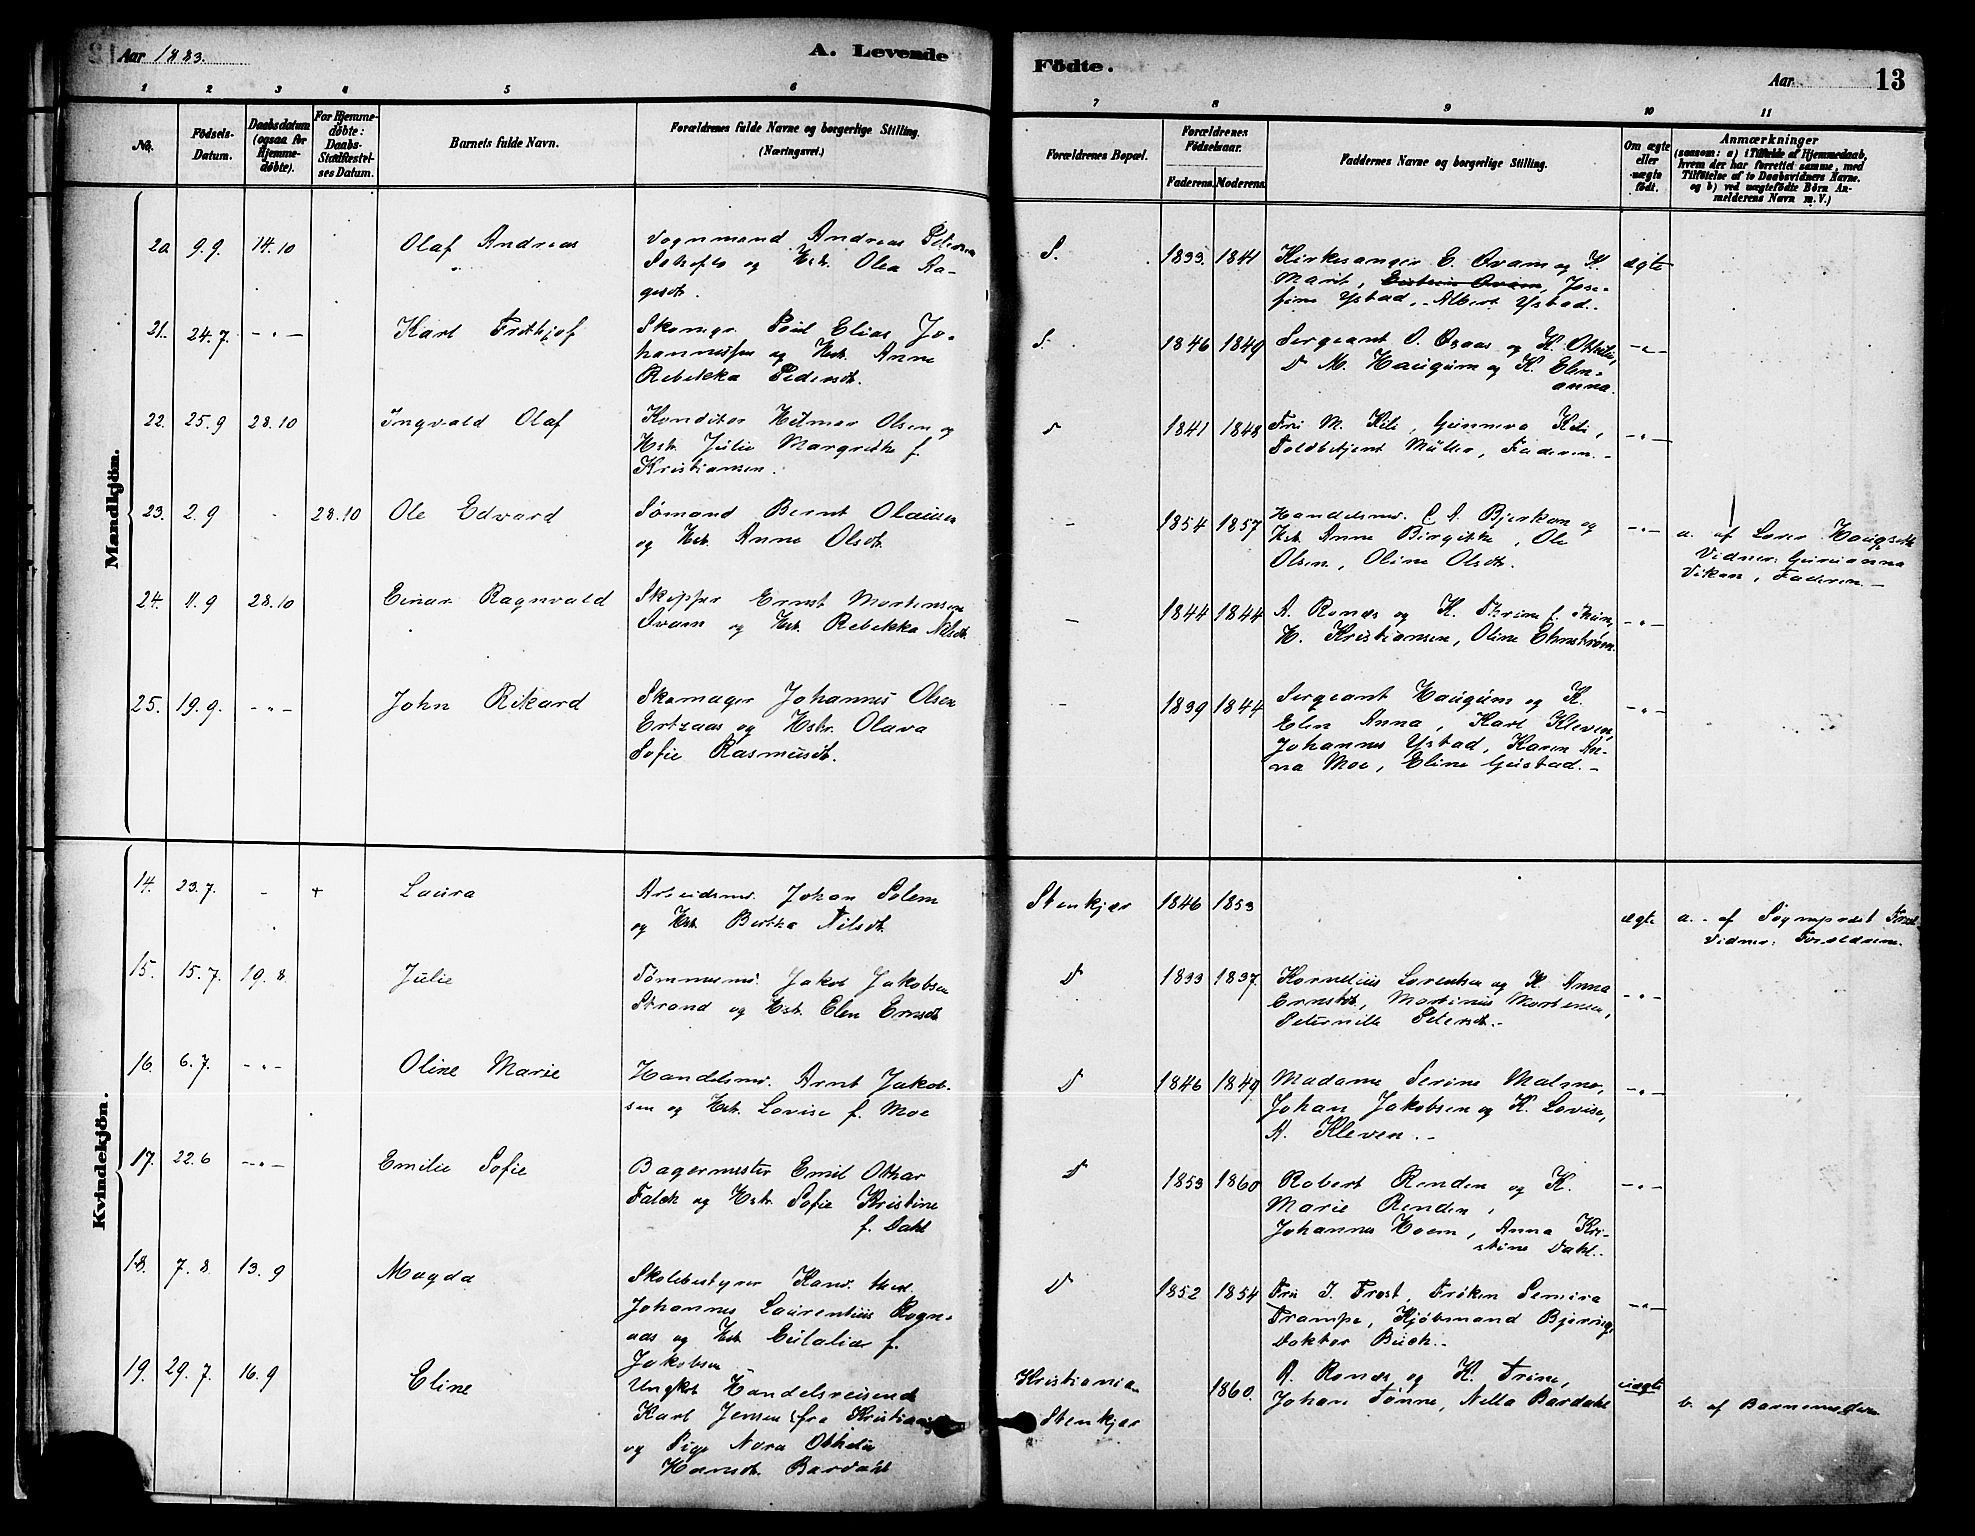 Aar 1883.
A. Levende
Födte.
Aar
13
1 2 3 4 5 6 7 8 9 10 11
No.
Födsels-
Datum.
Daabsdatum
(ogsaa for
Hjemme-
døbte).
For Hjemme-
døbte:
Daabs-
Stadfæstel-
ses Datum.
Barnets fulde Navn.
Forældrenes fulde Navne og borgerlige Stilling.
(Næringsvei.)
Forældrenes Bopæl.
Forældrenes
Fødselsaar.
Faderens. Moderens.
Faddernes Navne og borgerlige Stilling.
Om ægte
eller
uægte
født.
Anmærkninger
(saasom: a) i Tilfælde af Hjemmedaab,
hvem der har forrettet samme, med
Tilføielse af to Daabsvidners Navne.
og b) ved uægtefødte Börn An-
melderens Navn m. V.)
Mandkjön.
20 9.9. 14.10 Olaf Andreas
Vognmand Andreas Petersen
og Hstr. Olea Aa-
gesdt.
S. 1833. 1841
Kirkesanger E. Qvam og K.
Marit, Jose-
fine Ystad, Albert Ystad.
ægte
21. 24.7. -"- Karl Frithjof
Skomgr. Poul Elias Jo-
hannessen og Hstr. Anne
Rebekka Pedersdt.
S. 1846 1849
Sergeant O. Aasaas og K.
D M. Haugum og K. Elen-
anna.
-"-
22. 25.9 28.10 Ingvald Olaf
Konditor Hilmar Olsen og
Hstr. Julie Margrethe f.
Kristiansen.
D 1841 1848
Fru M. Kili, Gunneva Kili,
Toldbetjent Müller, Faderen.-
-"-
23. 2.9 - 28.10 Ole Edvard
Sømand Bernt Olausen
og Hstr. Anne Olsdt.
- 1854 1857
Handelsmd. C A. Bjerkan og
Hstr. Anne Birgitte, Ole
Olsen, Oline Olsdt.
-"-
a. af Lærer Haugseth
Vidner: Gurianna
Vikan, Faderen.-
24. 11.9 28.10 Einar Ragnvald
Skipper Ernst Mortensen
Svarn og Hstr. Rebekka Nilsdt.
- 1844 1844
A. Ronæs og K. Thrine f.
H. Kristiansen, Oline Ehnstrøm.
-"-
25. 19.9. -"- John Rikard
Skomager Johannes Olsen
Ertsaas og Hstr. Olava
Sofie Rasmusdt.
- 1839 1844
Sergeant Haugum og K.
Elen Anna, Karl Kleven,
Johannes Ystad, Karen An-
na Moe, Eline Gustad.-
-"-
Kvindekjön.
14. 23.7. - + Laura
Arbeidsmd. Johan Solem
og Hstr. Bertha Nilsdt.
Stenkjær 1846 1853
ægte
a. af Sognepræst
Vidner: Forældrene.
15. 15.7. 19.8 Julie
Tømmermd. Jakob Jakobsen
Strand og Hstr. Elen Ernsdt.
D 1833 1837.
Kornelius Lorentsen og K. Anna
Ernstdt., Martinus Mortensen,
Peternille Petersdt.-
-"-
16. 6.7. -"- Oline Marie
Handelsmd. Arnt Jakob-
sen og Hstr. Lovise f. Moe
D 1846 1849
Madame Serine Malmo,
Johan Jakobsen og K. Lovise,
A. Kleven.-
-"-
17. 22.6 -"- Emilie Sofie
Bagermester Emil Othar
Falck og Hstr. Sofie Kristine
f. Dahl
D 1853 1860
Robert Renden og K.
Marie Renden,
Johannes Hoem, Anna Kri-
stine Dahl.-
-"-
18. 7.8. 13.9 Magda
Skolebestyrer Kand. theol.
Johannes Laurentius Rogn-
aas og Hstr. Eulalia f.
Jakobsen
D 1852 1854
Fru J. Frost, Frøken Semira
Trampe, Kjøbmand Bjerring,
Doktor Buch.-
-"-
19. 29.7. 16.9 Eline
Ungkar Handelsreisende
Karl Jensen (fra Kristiania)
og Pige Nora Othelie
Hansdt. Bardahl
Kristiania
Stenkjær
1860.
A. Ronæs og K. Trine,
Johan Tønne, Nella Bardahl
uægte
b. af Barnemoderen